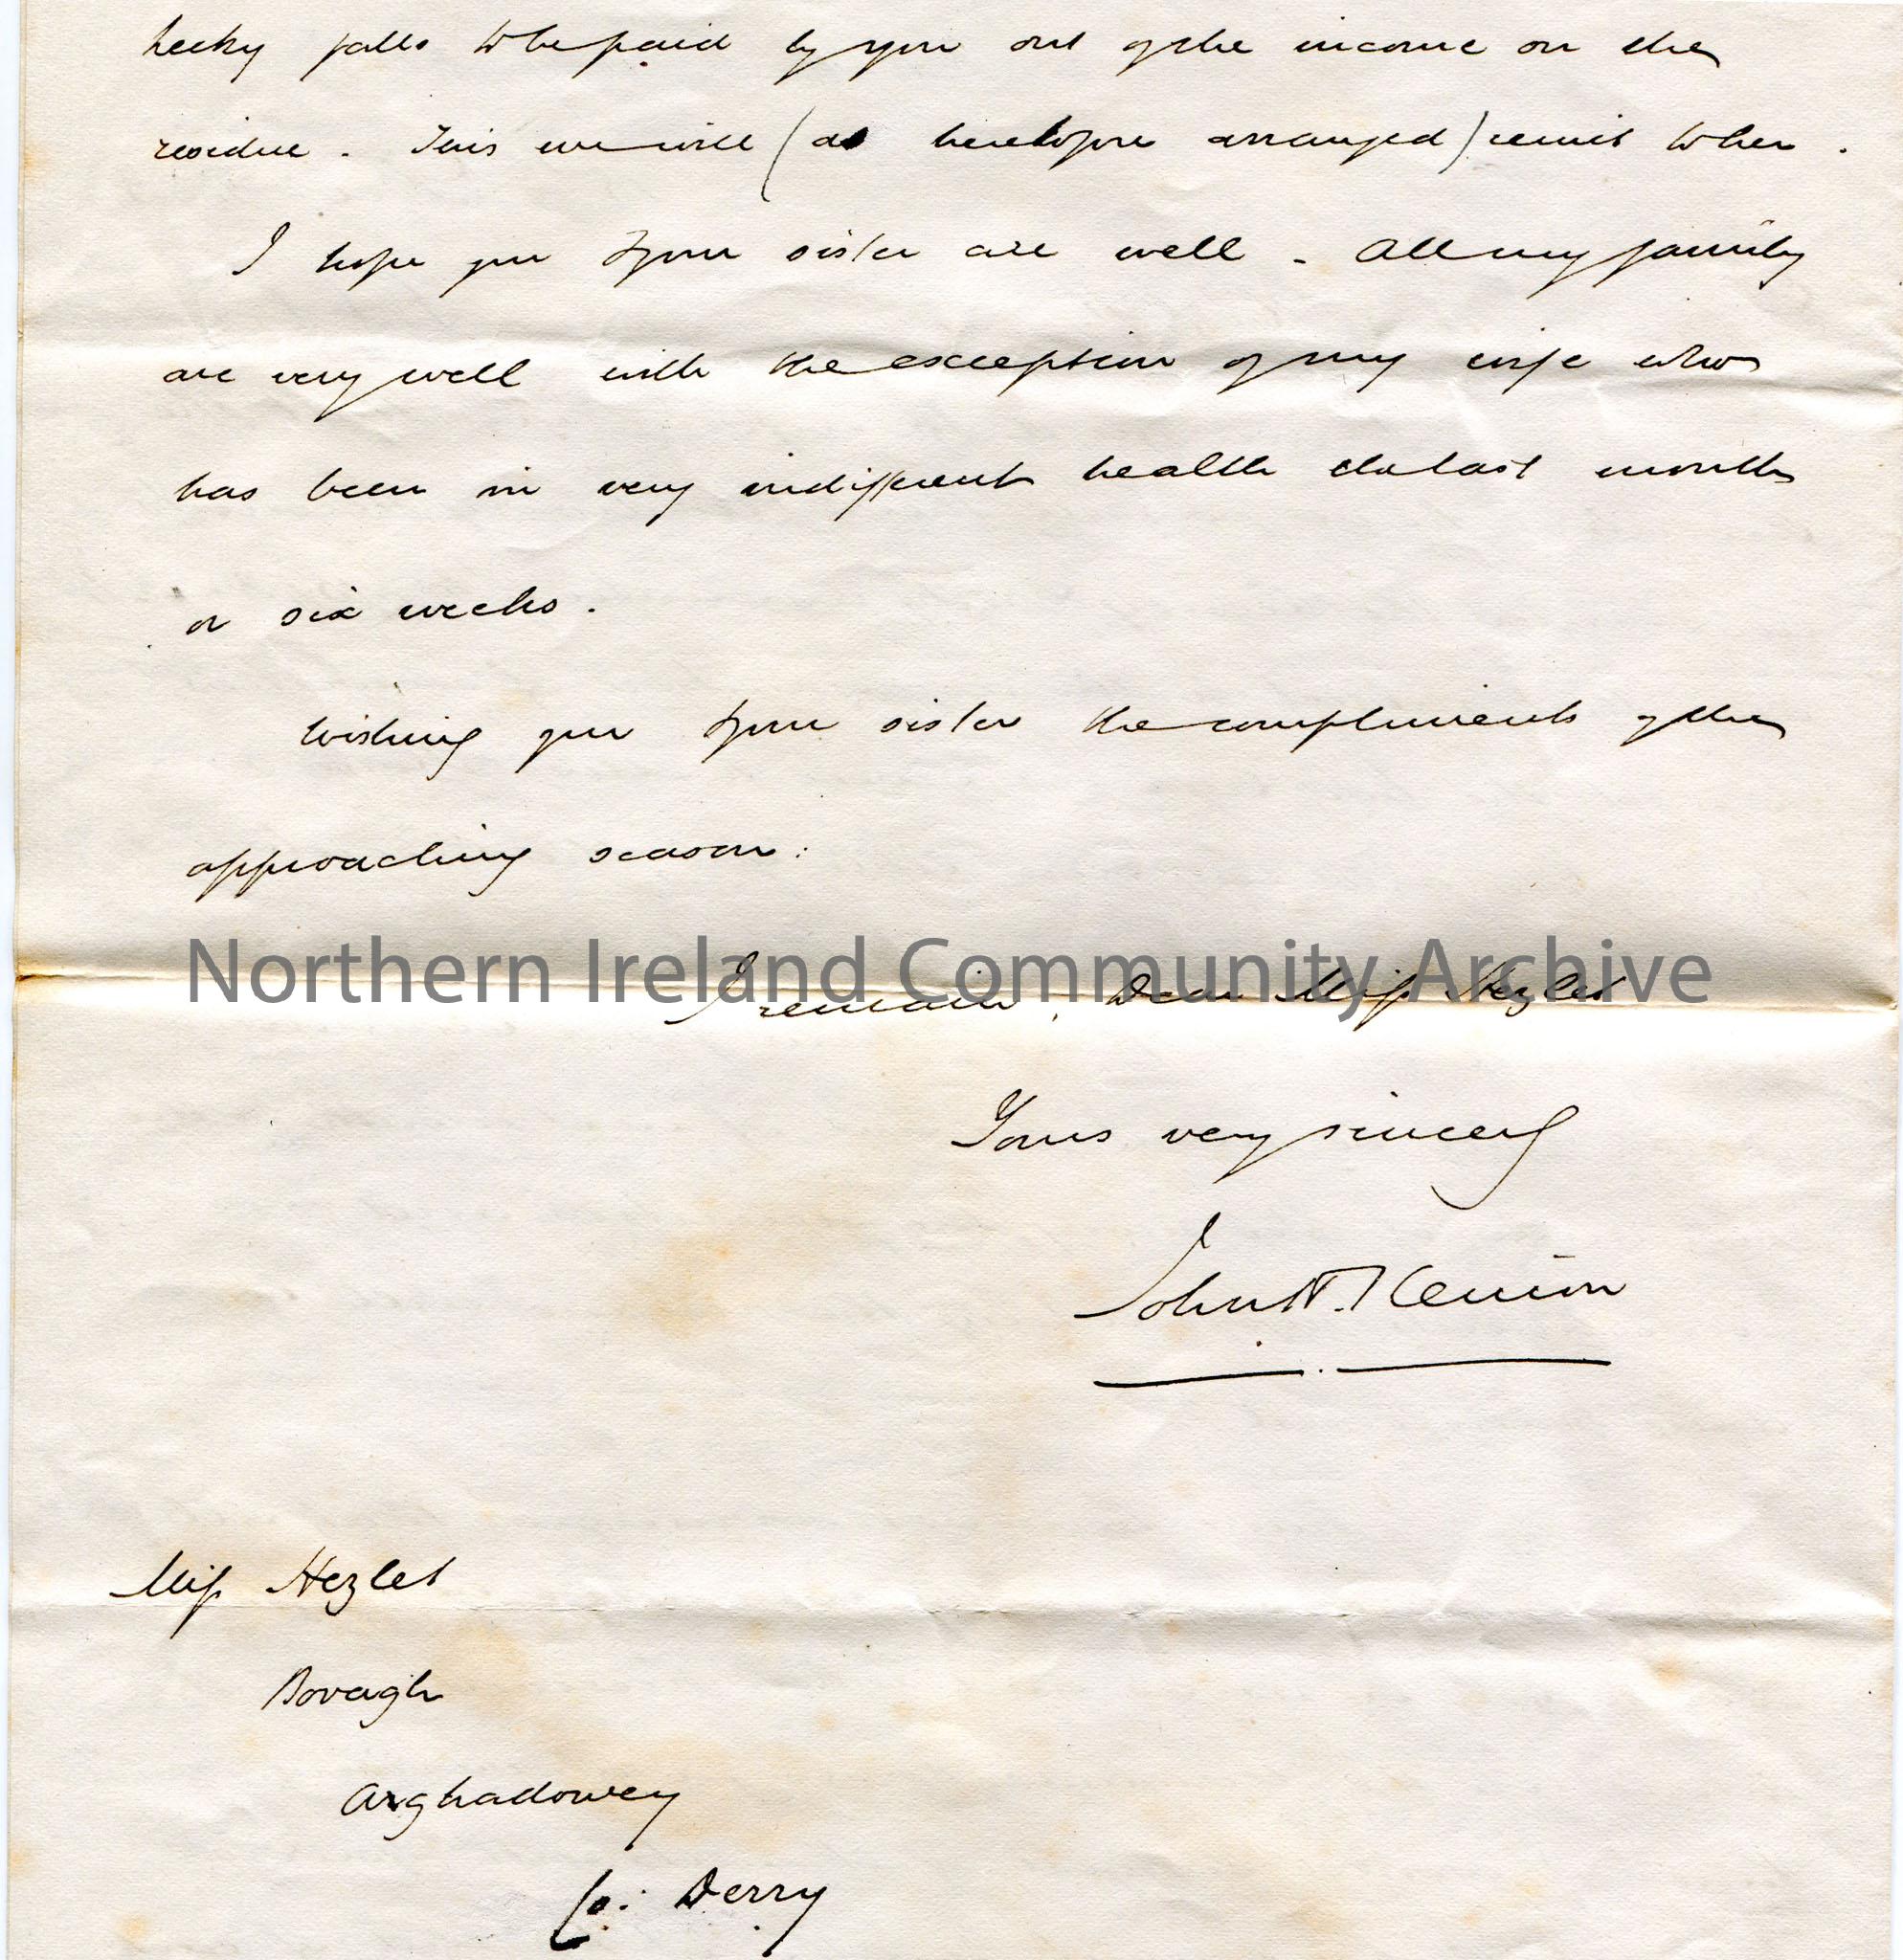 falls to be paid by you out of the income on the
residue. This we will (as heretofore arranged) remit to her.
I hope you & your sister are well - All my family
are very well with the exception of my wife who
has been in very indifferent health the last month
or six weeks.
Wishing you & your sister the compliments of the
approaching season:
Northern Ireland Community Archive
I remain, Dear Miss Hezlet
Yours very sincerely
John
Miss Hezlet
Bovagh
Aghadowey
Co: Derry